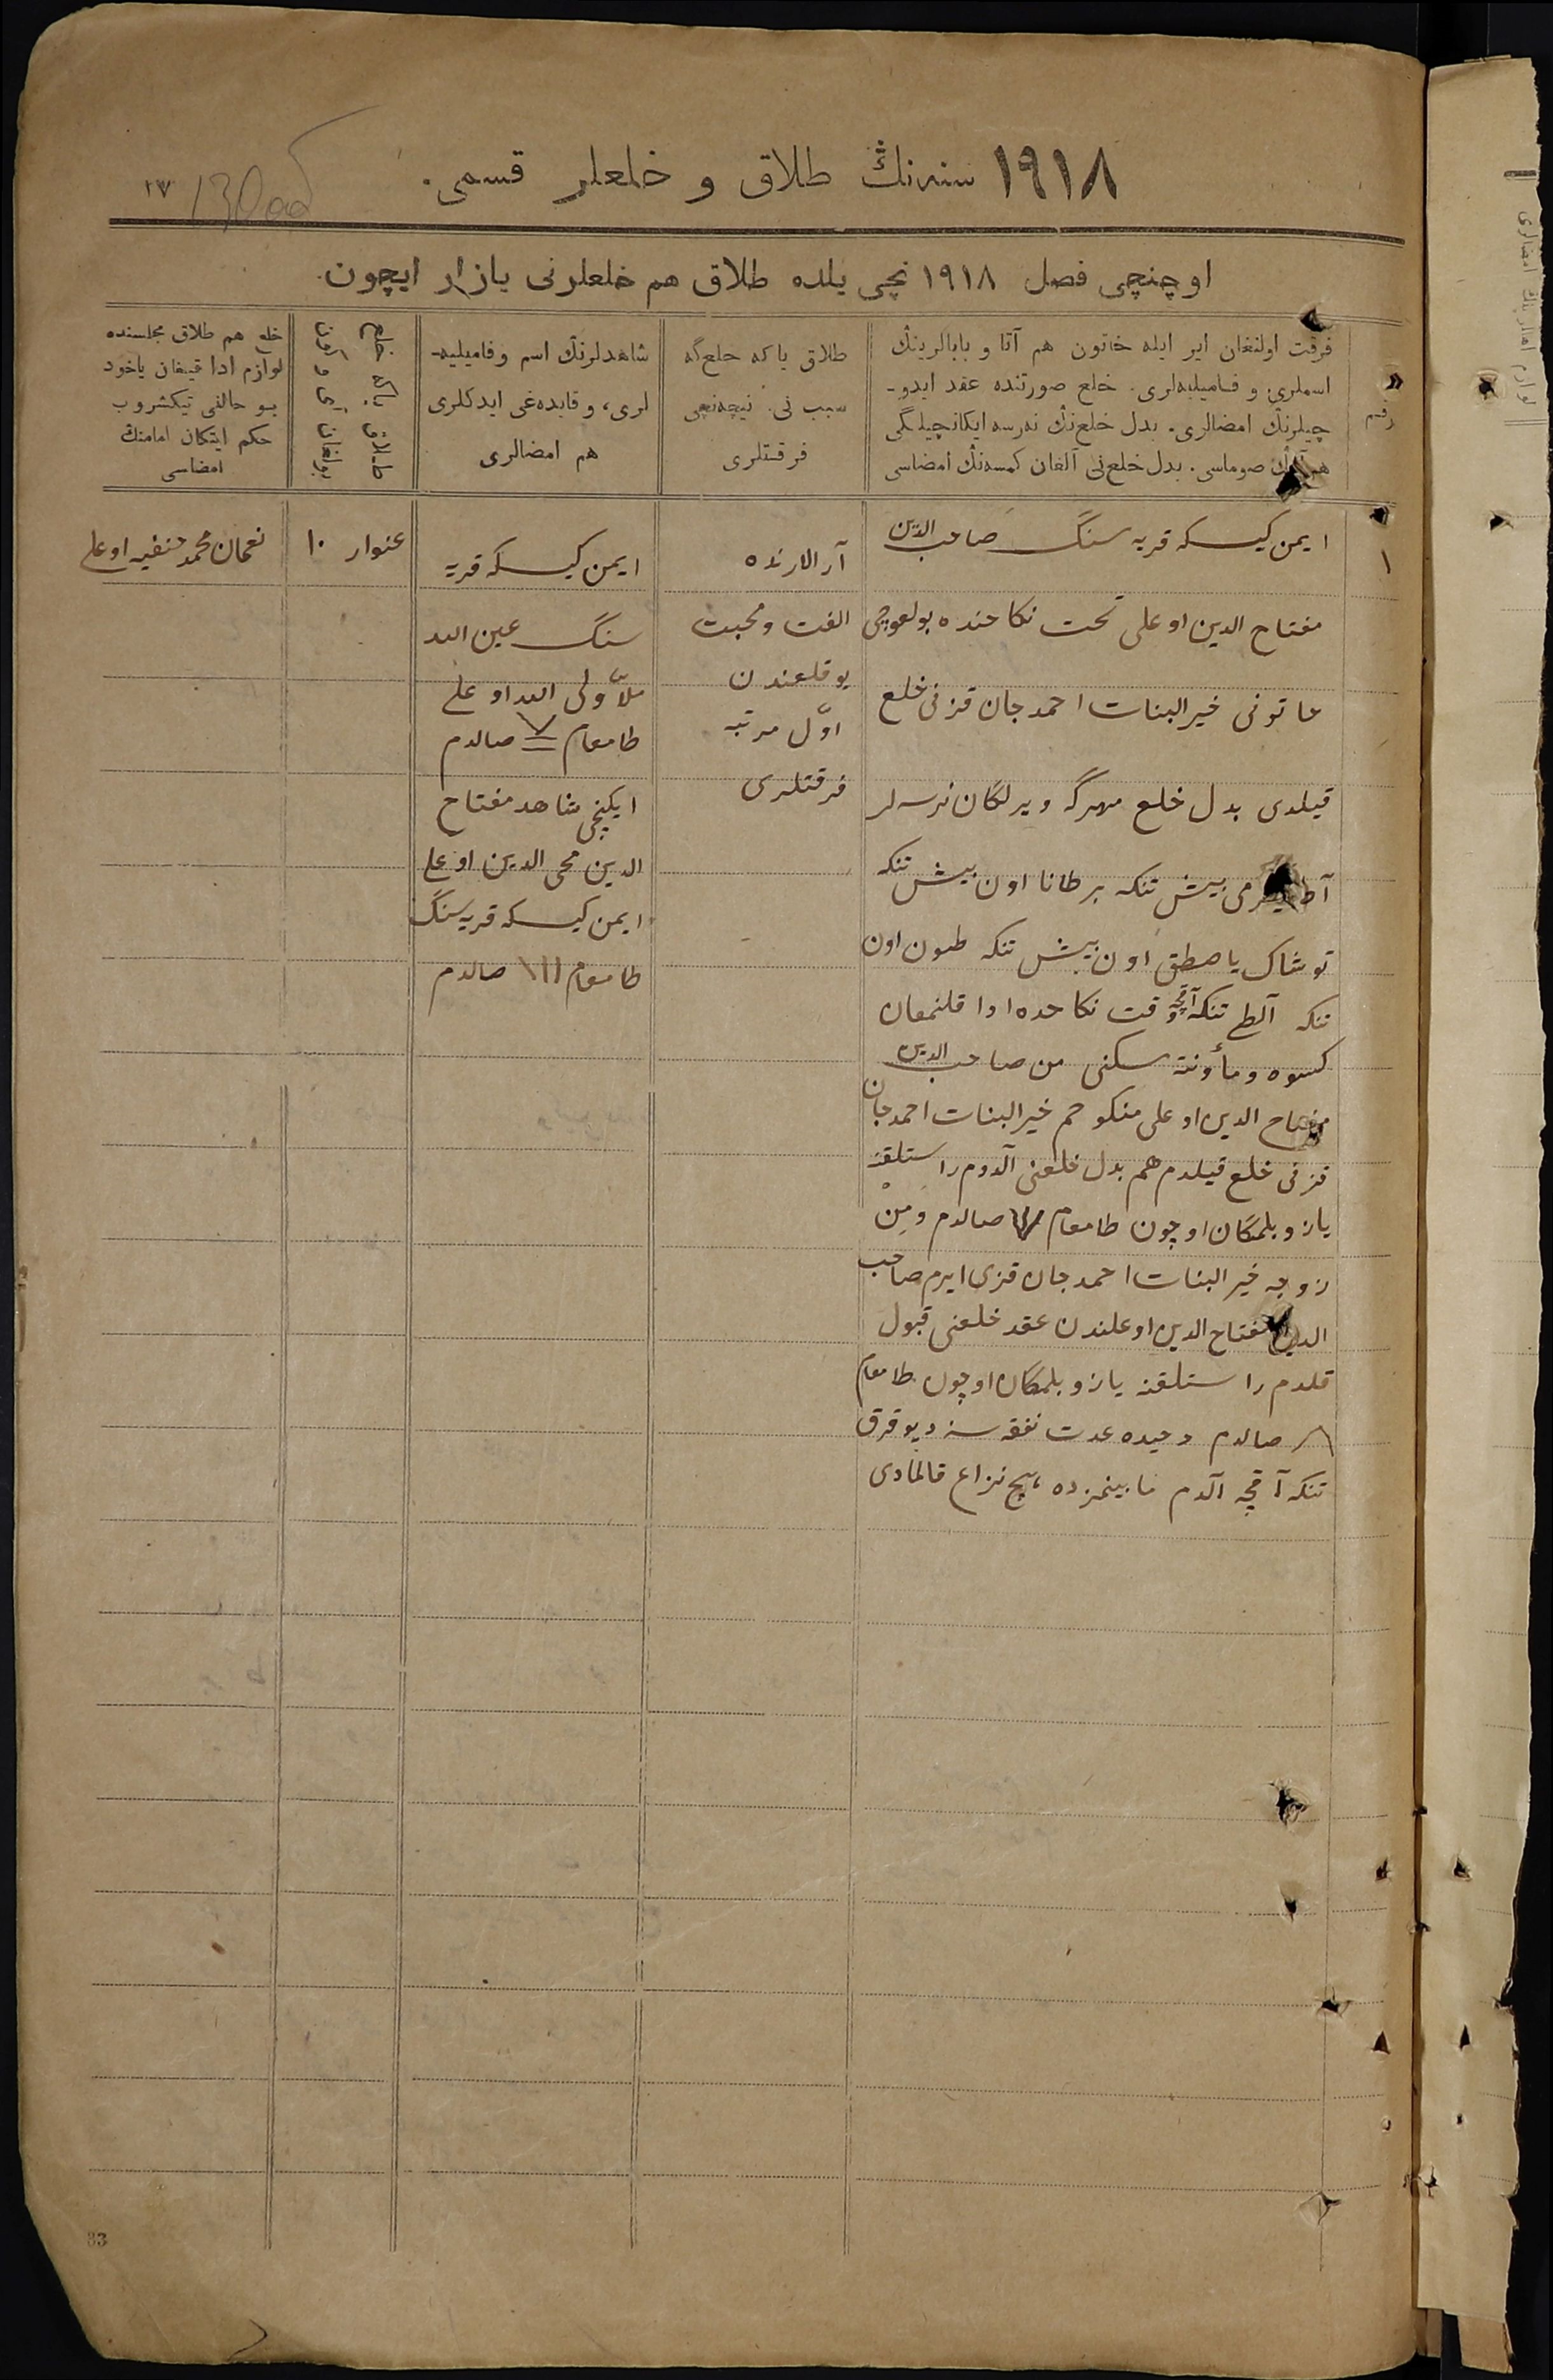 ١٩١٨ سنه‌نڭ طلاق و خلعلر قسمی.
١٧
اوچنچی فصل ١٩١٨ نچی یلده طلاق هم خلعلرنی یازار ایچون.
رقم
فرقت اولنغان ایر ایله خاتون هم آتا و بابالرینڭ
اسملری و فامیلیه‌لری. خلع صورتنده عقد ایدو-
چیلرنڭ امضالری. بدل خلع‌نڭ نه‌رسه ایکانچیلگی
صوماسی. بدل خلع‌نی آلغان کمسه‌نڭ امضاسی
طلاق یا که خلع‌گه
سبب نی. نیچه‌نچی
فرقتلری
شاهدلرنڭ اسم و فامیلیه-
لری، و قایده‌غی ایدکلری
هم امضالری
خلع یاکه طلاق
بولغان آی و کون
خلع هم طلاق مجلسنده
لوازم ادا قیلغان یاخود
بو حالنی تیکشروب
حکم ایتکان امامنڭ
امضاسی
١
ایمن کیسکه قریه سنگ صاحب الدین
مفتاح الدین اوغلی تحت نکاحنده بولغوچی
خاتونی خیرالبنات احمدجان قزنی خلع
قیلدی بدل خلع مهرگه ویرلگان نرسه‌لر
آط یگرمی بیش تنکه بر طانا اون بیش تنکه
توشاک یاصطق اون بیش تنکه طون اون
تنکه آلطی تنکه آقچه وقت نکاحده ادا قلنمغان
کسوه و مأونت سکنی من صاحب الدین
مفتاح الدین اوغلی منکوحم خیرالبنات احمدجان
قزنی خلع قیلدم هم بدل خلعنی آلدوم راستلقنه
یازو بلمگان اوچون طامغام صالدم و من
زوجه خیرالبنات احمدجان قزی ایرم صاحب
الدین مفتاح الدین اوغلندن عقد خلعنی قبول
قلدم راستلقنه یازو بلمگان اوچون طامغام
صالدم عدت نفقه سنه دیو قرق
تنکه آقچه آلدم مابینمزده هیچ نزاع قالمادی
آرالارنده
الفت و محبت
یوقلغندن
اوّل مرتبه
فرقتلری
ایمن کیسکه قریه
سنگ عین الله
ملاّ ولی الله اوغلی
طامغام صالدم
ایکنچی شاهد مفتاح
الدین محی الدین اوغلی
ایمن کیسکه قریه سنگ
طامغام ١١١ صالدم
غنوار ١٠
نعمان محمد حنفیه اوغلی
83